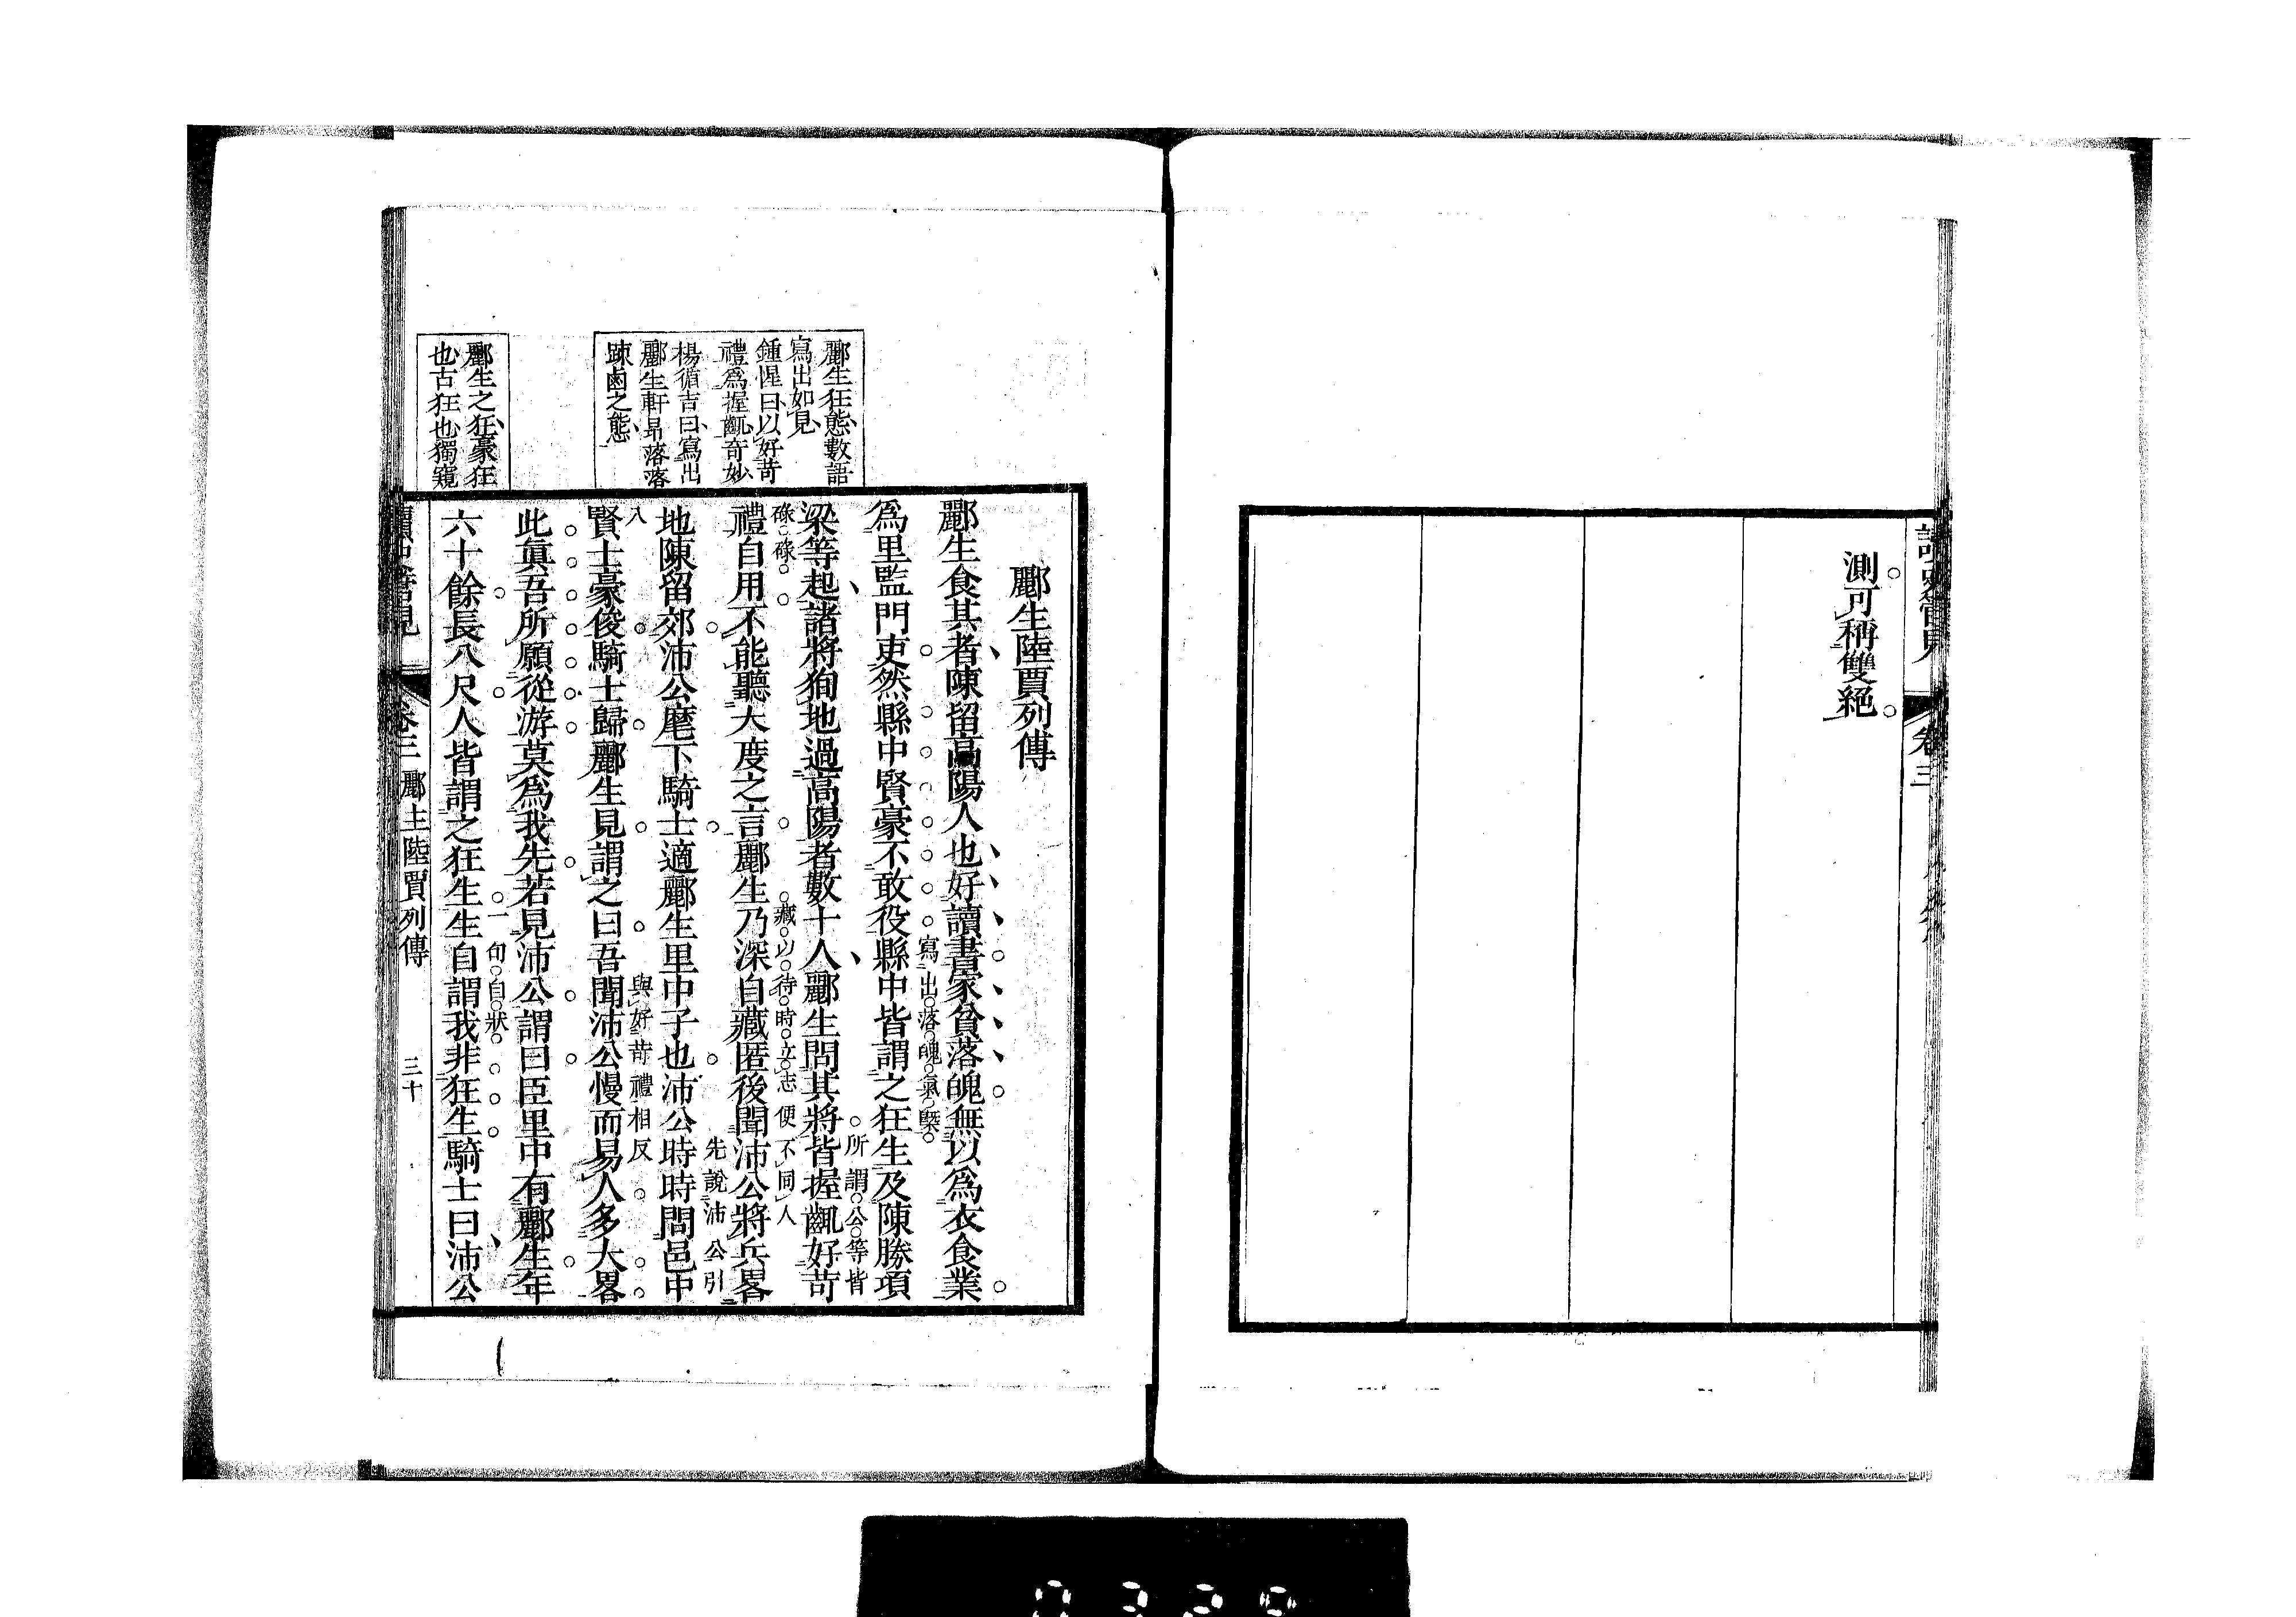 測可稱雙絕
卷三
酈生陸賈列傳
酈生食其者陳留高陽人也好讀書家貧落魄無以爲衣食業
爲里監門吏然縣中賢豪不敢役縣中皆謂之狂生及陳勝項
寫出落魄氣槩
梁等起諸將徇地過高陽者數十人酈生問其將皆握齱好苛
所謂公等皆
碌碌
禮自用不能聽大度之言酈生乃深自藏匿後聞沛公將兵畧
藏以待時立志便不同人
地陳留郊沛公麾下騎士適酈生里中子也沛公時時問邑中
先說沛公引
入
賢士豪俊騎士歸酈生見謂之曰吾聞沛公慢而易人多大畧
與好苛禮相反
此眞吾所願從游莫爲我先若見沛公謂曰臣里中有酈生年
六十餘長八尺人皆謂之狂生生自謂我非狂生騎士曰沛公
一句自狀
酈生狂態數語
寫出如見
鍾惺曰以好苛
禮爲握齱奇妙
楊循吉曰寫出
酈生軒昂落落
踈鹵之態
酈生之狂豪狂
也古狂也獨窺
卷三 酈生陸賈列傳 三十